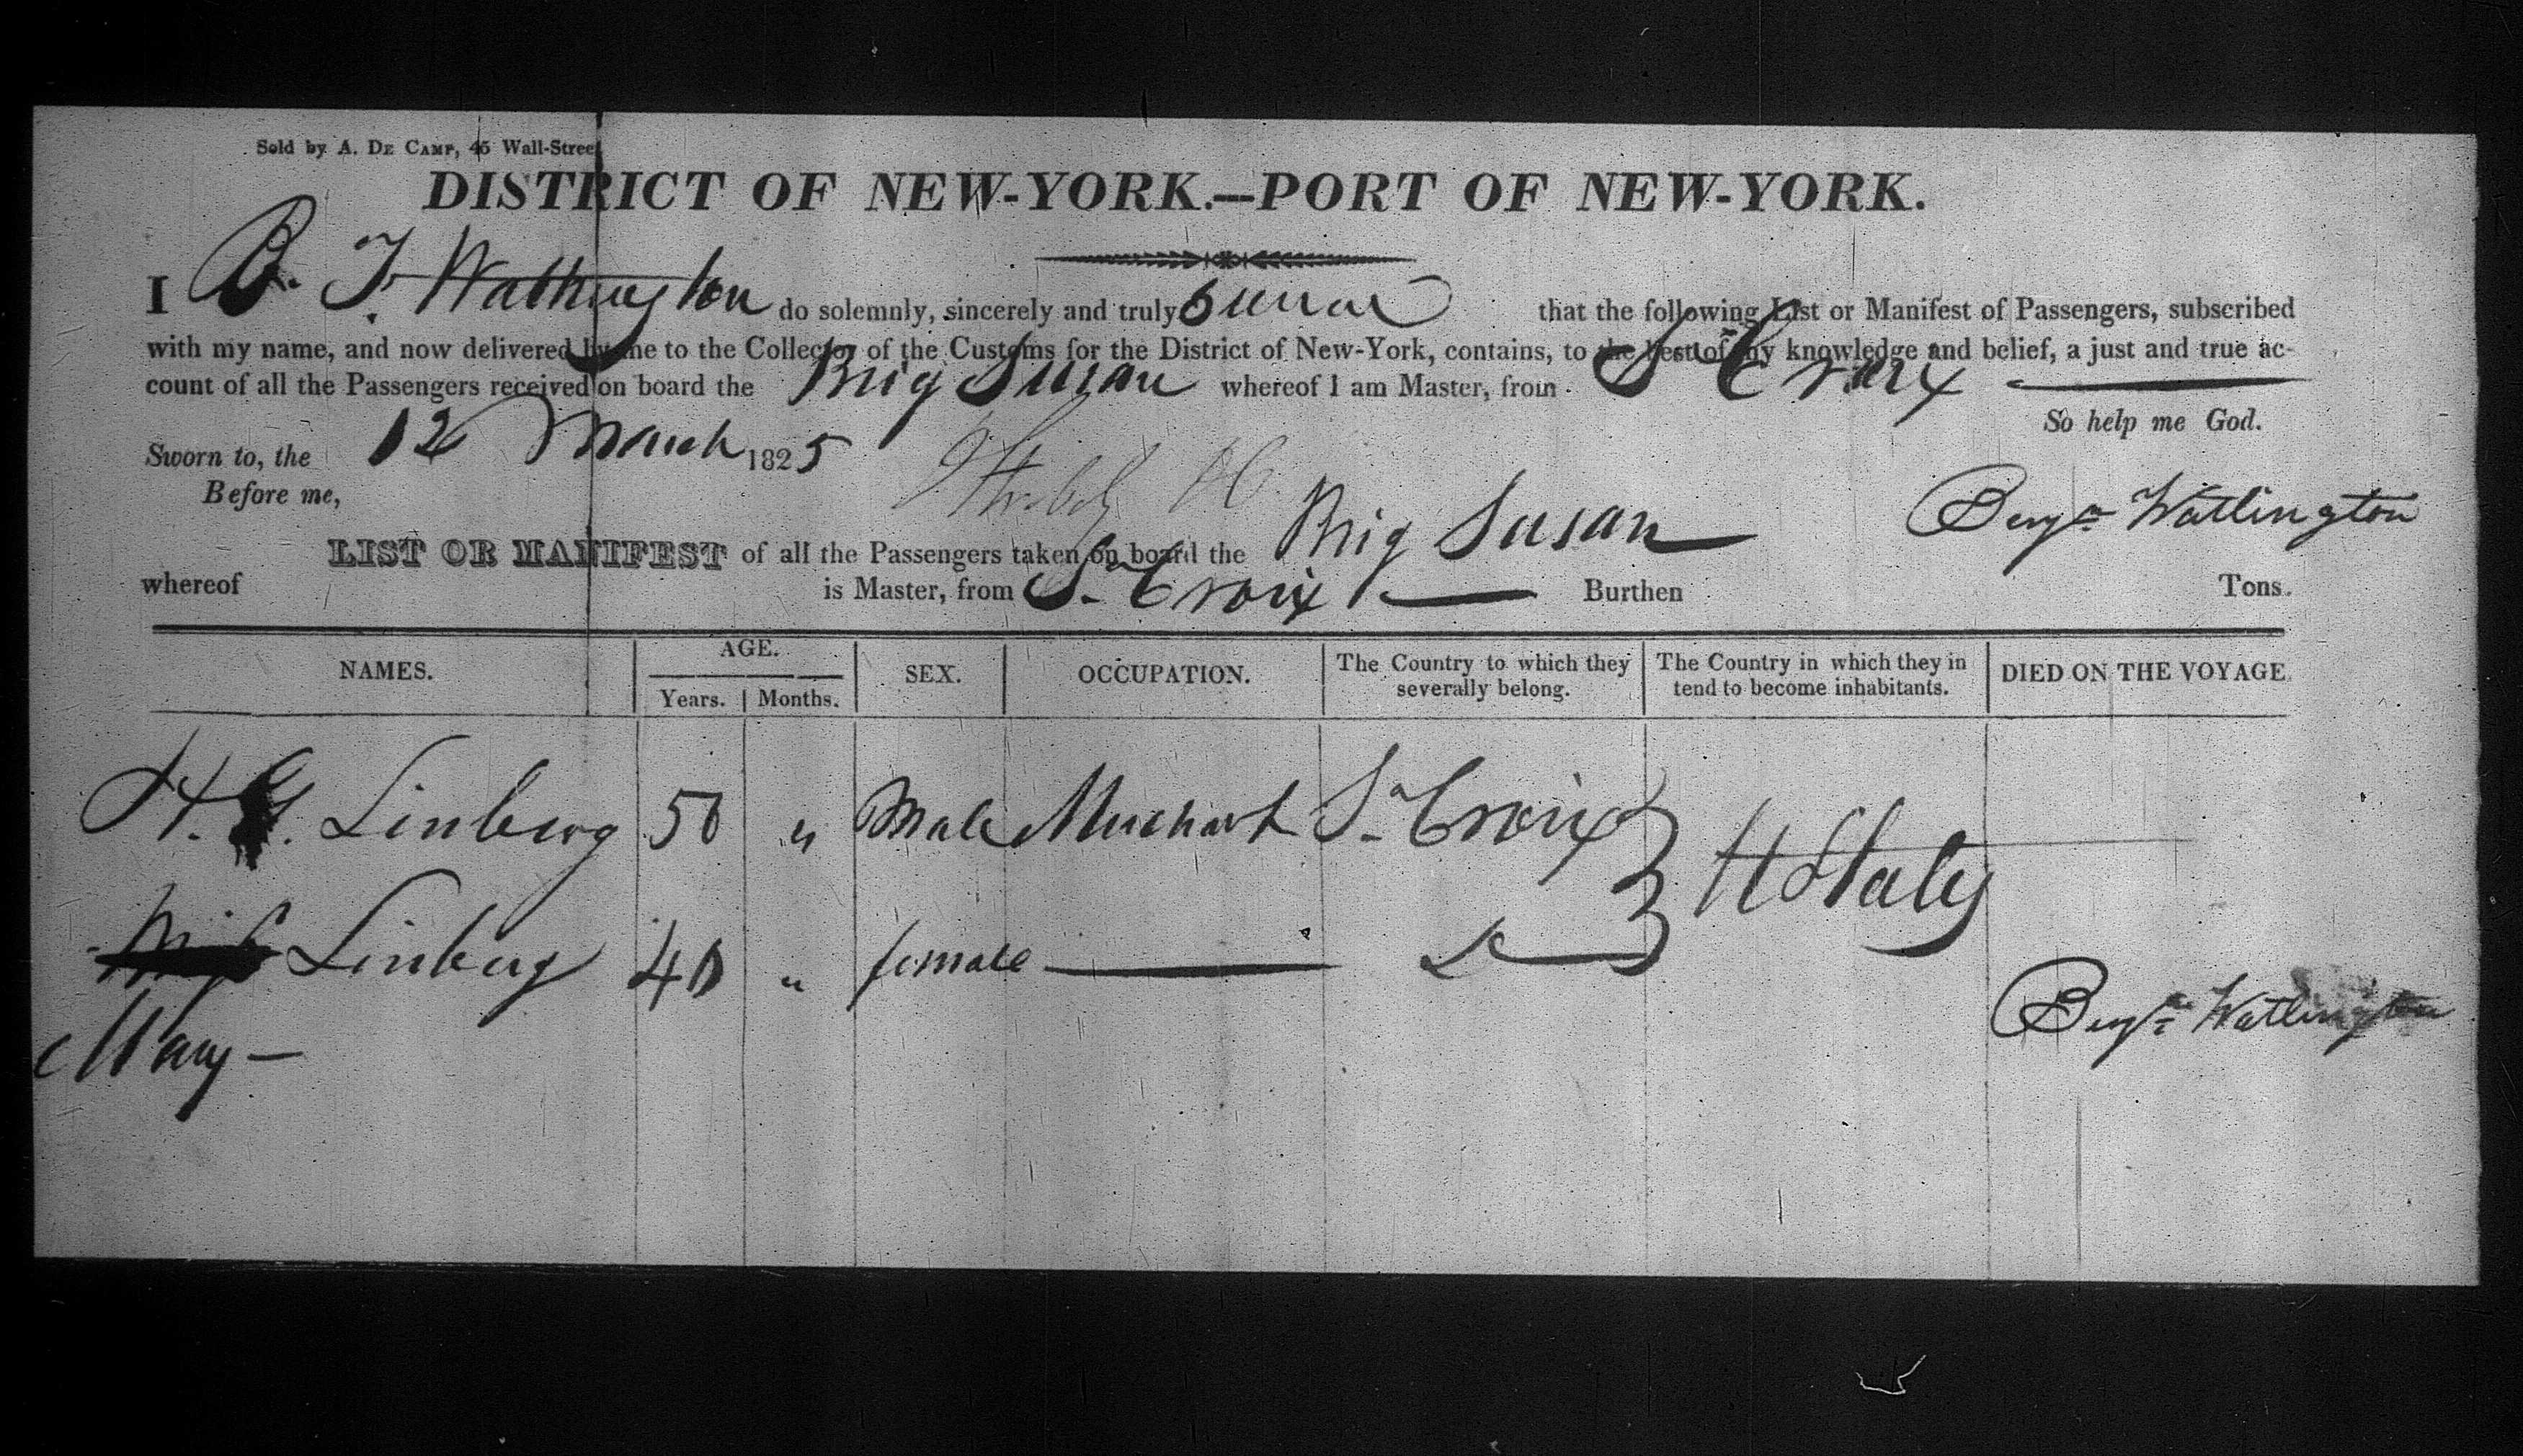 Sold by A. De Camp, 45 Wall-Street
DISTRICT OF NEW-YORK.—PORT OF NEW-YORK.
I B. F. Wathington do solemnly, sincerely and truly swear that the following List or Manifest of Passengers, subscribed
with my name, and now delivered by me to the Collector of the Customs for the District of New-York, contains, to the best of my knowledge and belief, a just and true ac-
count of all the Passengers received on board the Brig Susan whereof I am Master, from St Croix
So help me God.
Sworn to, the 12 March 1825
Before me,
Benjn Watlington
LIST OR MANIFEST of all the Passengers taken on board the Brig Susan
whereof is Master, from St Croix Burthen Tons.
NAMES. AGE. Years. Months. SEX. OCCUPATION. The Country to which they severally belong. The Country in which they in tend to become inhabitants. DIED ON THE VOYAGE.
H. G. Linberg 50 " Male Merchant St Croix U States
Linberg 40 " female
Mary —
Benjn Watlington